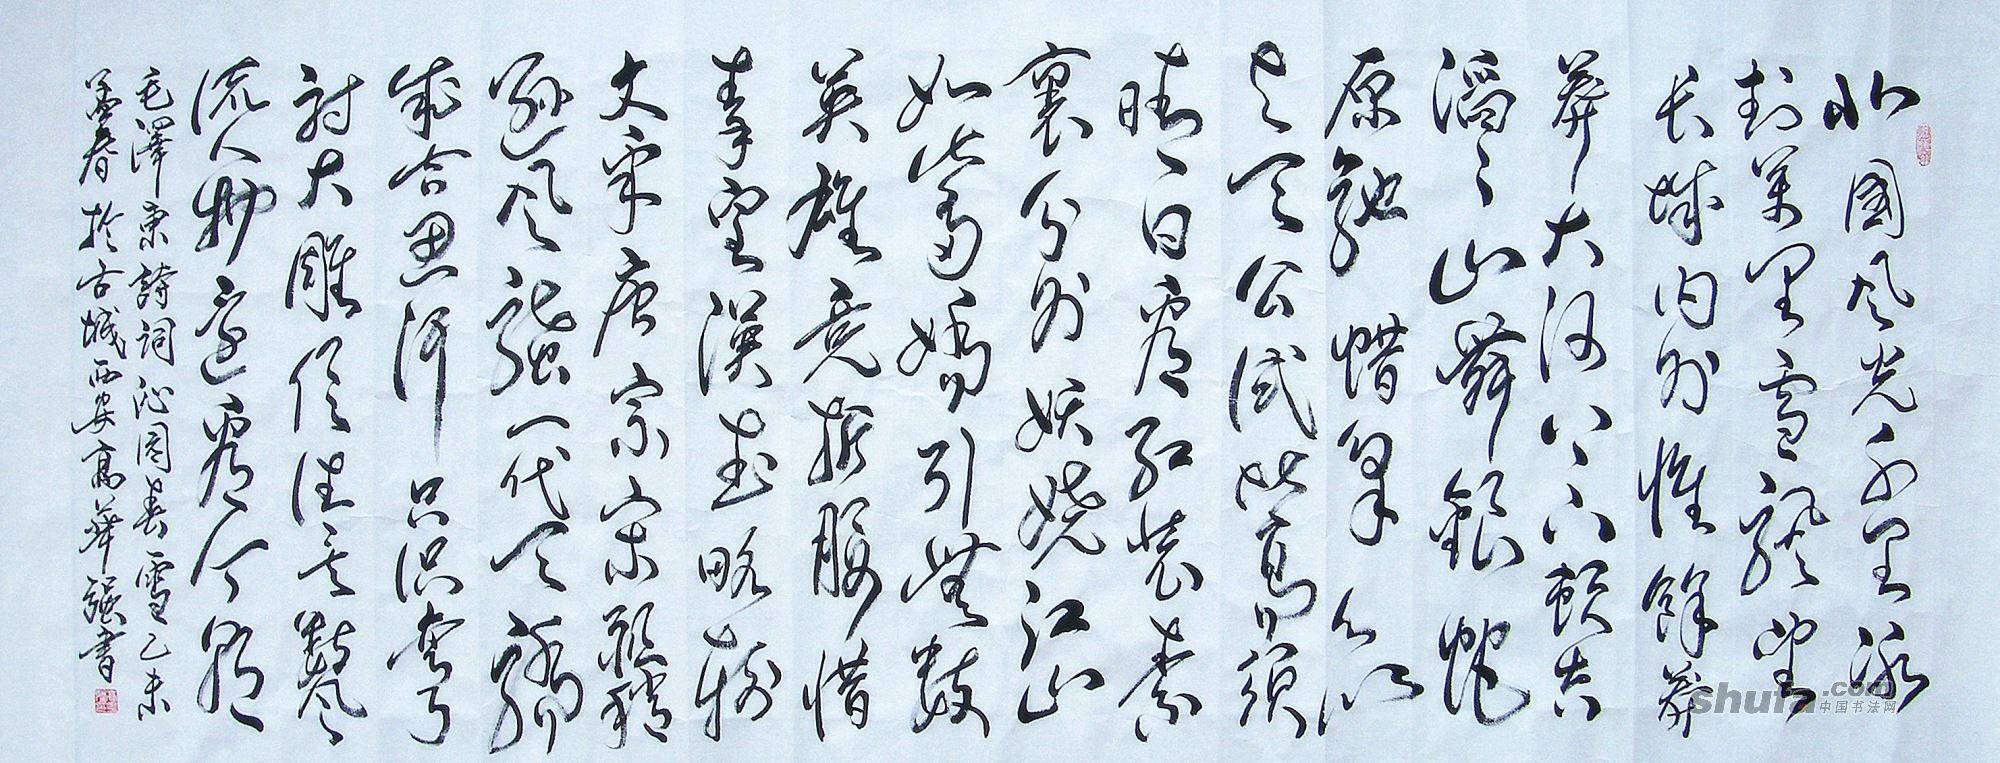 北國风光千里冰
封万里雪飘望
长城内外惟餘莽
莽大河上下顿失
滔〻山舞銀蛇
原驰蜡象欲
与天公试比高须
晴日看红装素
裹分外妖娆江山
如此多娇引無数
英雄竞折腰惜
秦皇漢武略输
文采唐宗宋祖稍
逊风骚一代天骄
成吉思汗只识弯弓
射大雕俱往矣数风
流人物还看今朝
毛澤東詩詞沁园春雪乙未
孟春於古城西安高華强书
shufa.com
中国书法网